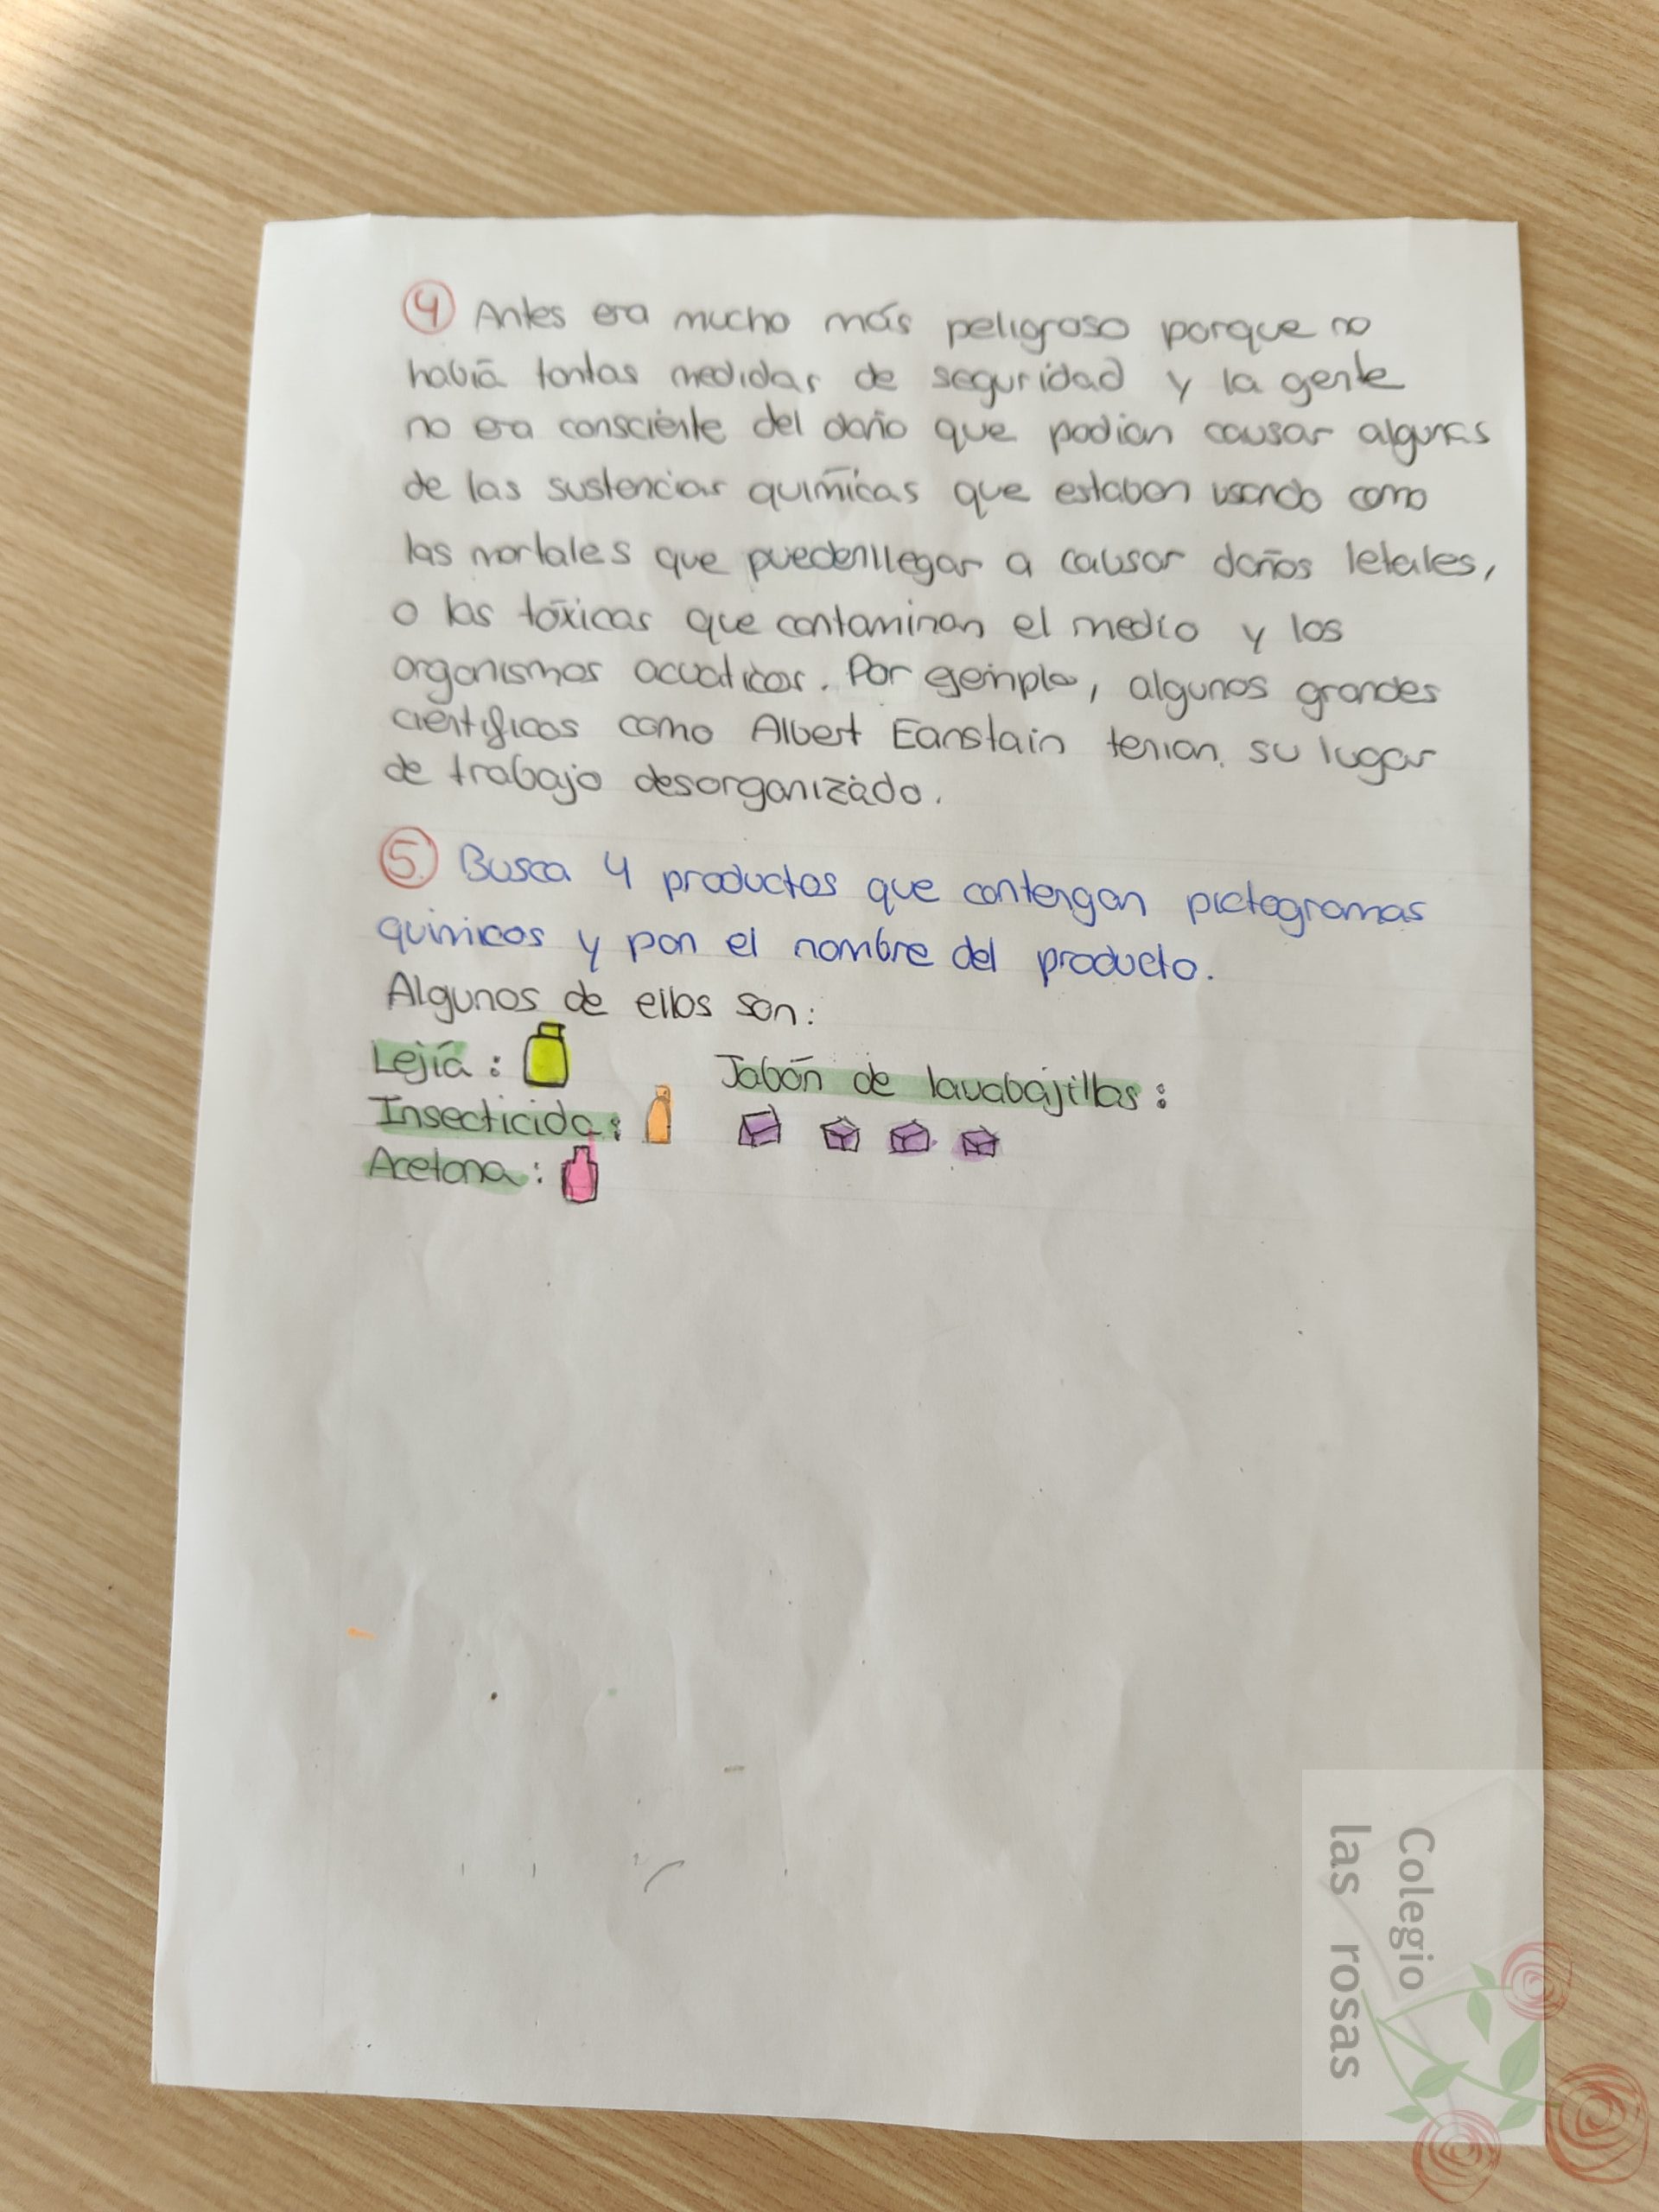 4 Antes era mucho más peligroso porque no
había tantas medidas de seguridad y la gente
no era consciente del daño que podían causar algunas
de las sustancias químicas que estaban usando como
las mortales que pueden llegar a causar daños letales,
o las tóxicas que contaminan el medio y los
organismos acuaticos. Por ejemplo, algunos grandes
científicos como Albert Eanstain tenian su lugar
de trabajo desorganizado.
5. Busca 4 productos que contengan pictogramas
quimicos y pon el nombre del producto.
Algunos de ellos son:
Lejía:
Insecticida:
Acetona:
Jabón de lavabajillas:
Colegio
las rosas